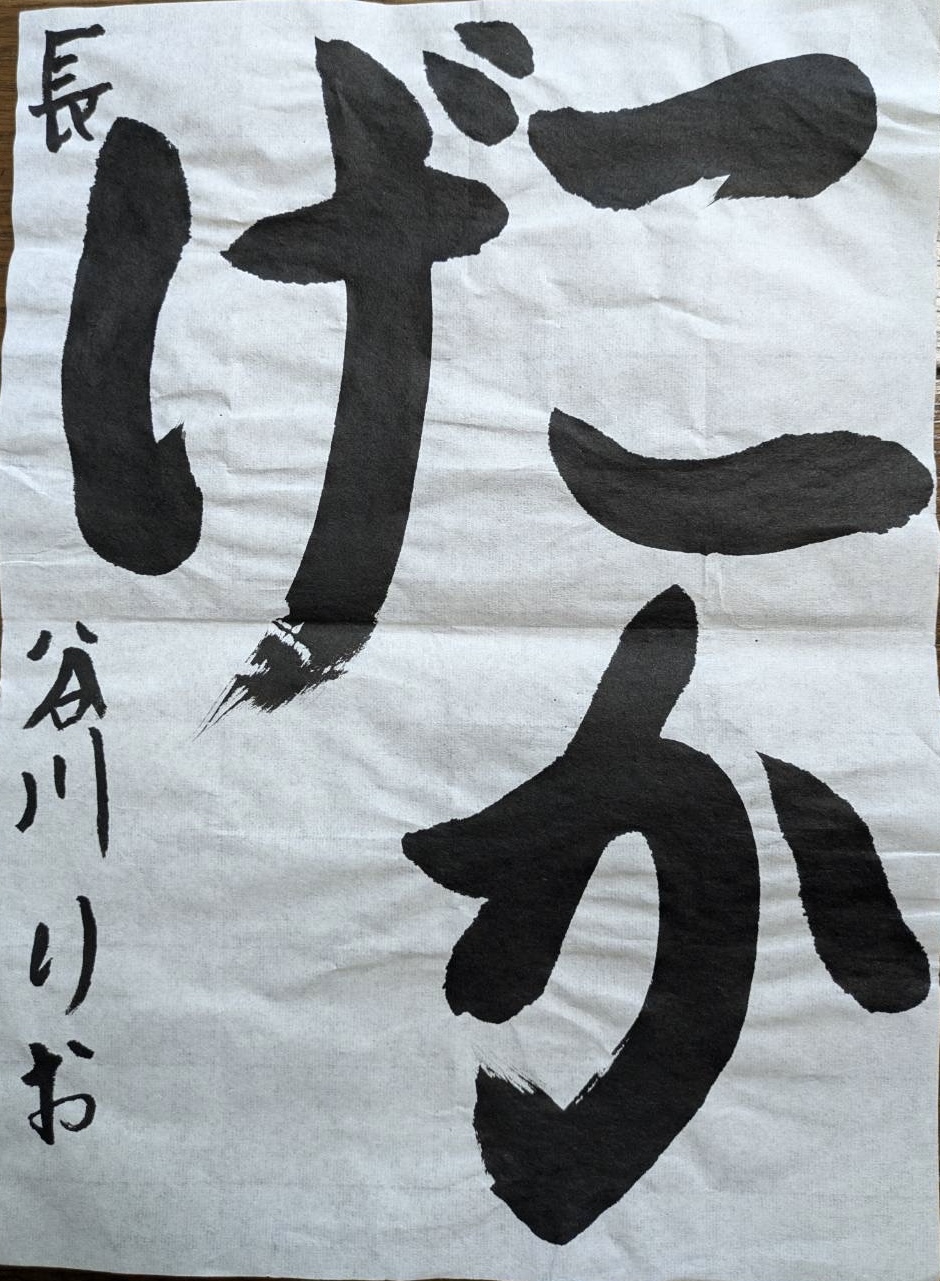 こか
げ
長谷川りお